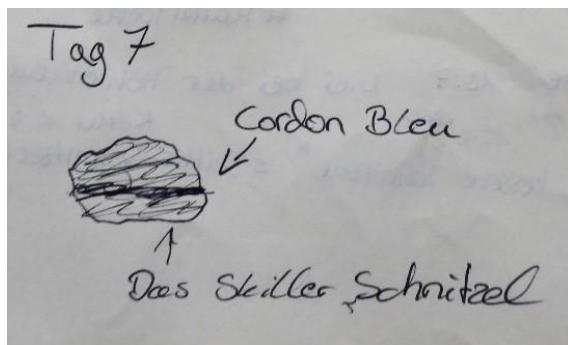 Tag 7
Cordon Bleu
Das Skiller Schnitzel